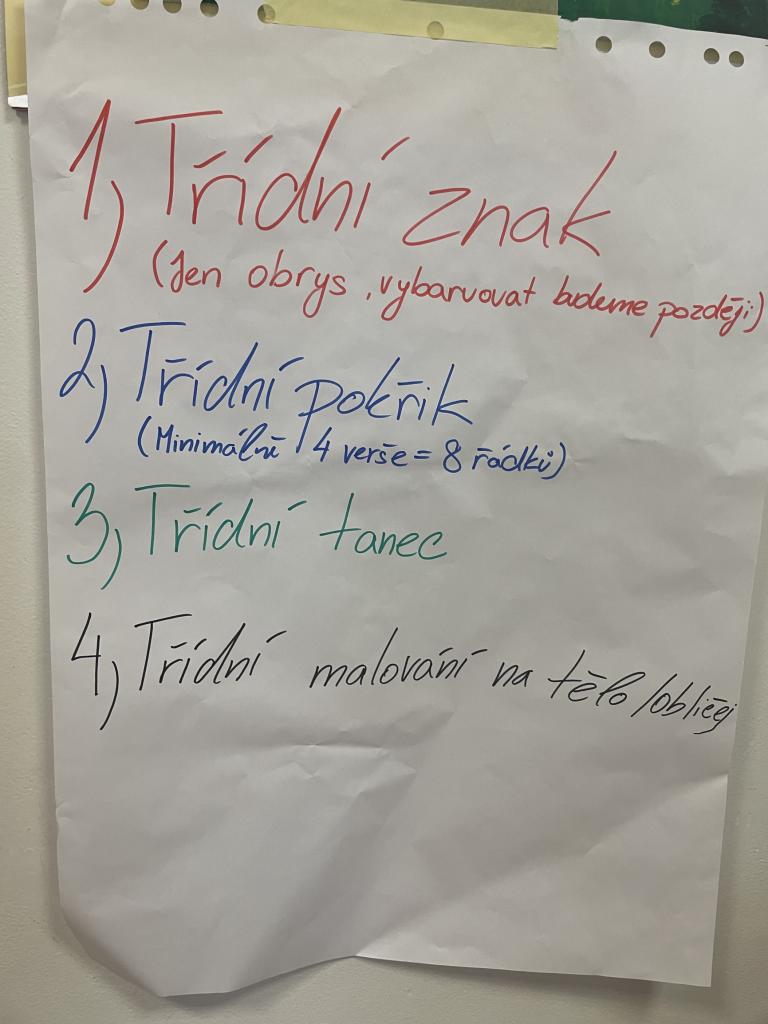 1) Třídní znak
(Jen obrys, vybarvovat budeme později)
2) Třídní pokřik
(Minimálně 4 verše = 8 řádků)
3) Třídní tanec
4) Třídní malování na tělo/obličej